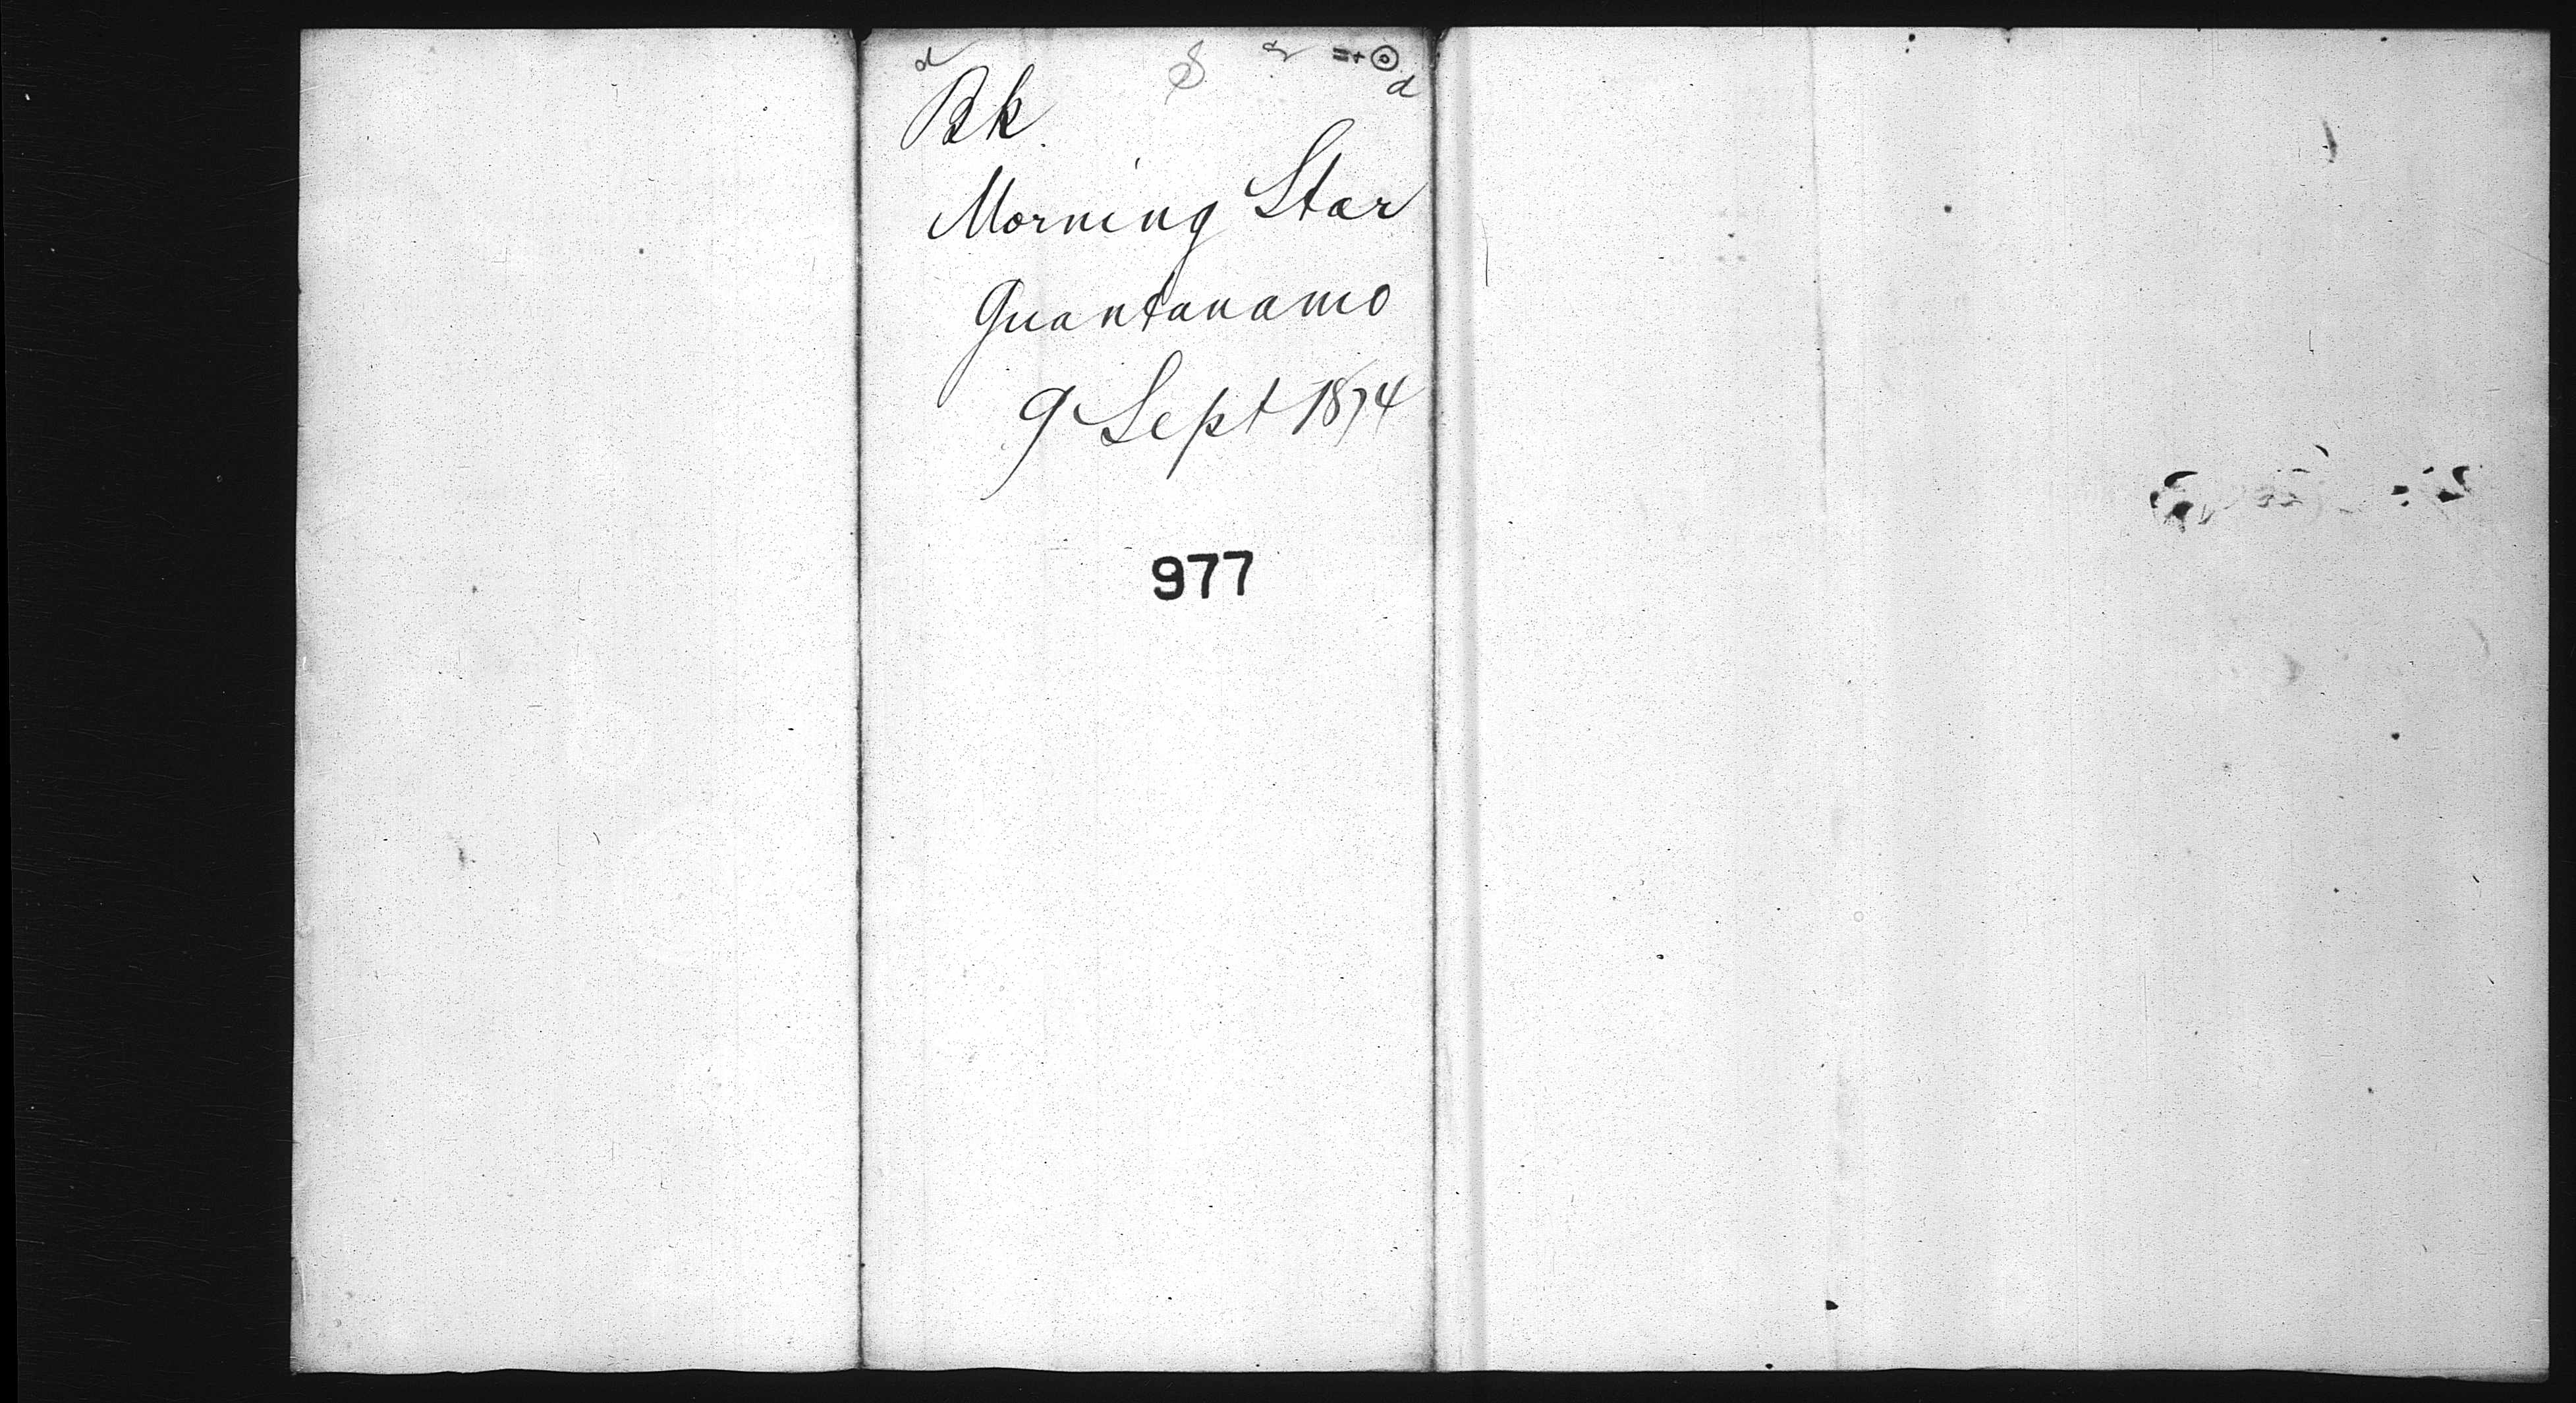 Bk
Morning Star
Guantanamo
9 Sept 1874
977